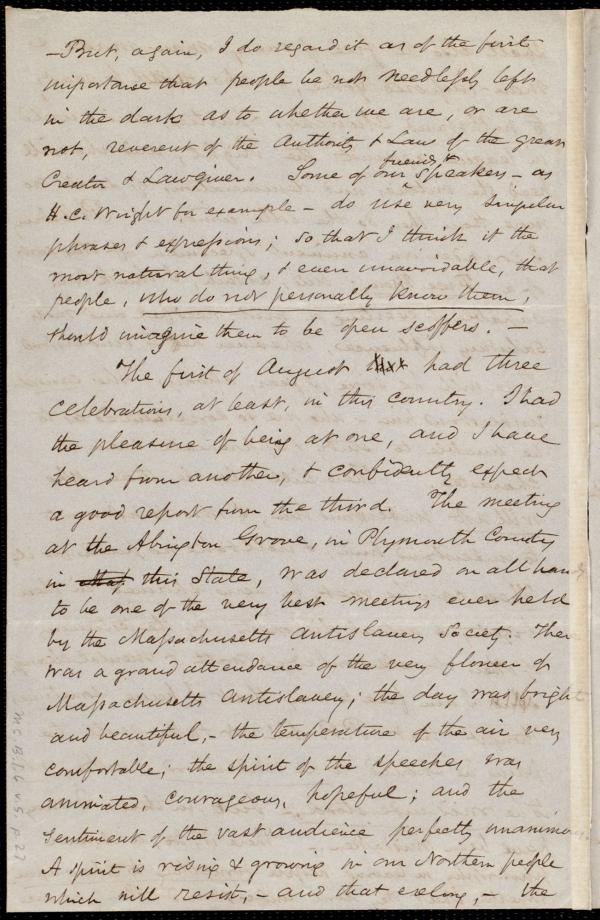 — But, again, I do regard it as of the first
importance that people be not needlessly left
in the dark as to whether we are, or are
not, reverent of the Authority & Law of the great
Creator & Lawgiver. Some of our friends & speakers – as
H. C. Wright for example – do use very singular
phrases & expressions; so that I think it the
most natural thing, & even unavoidable, that
people, who do not personally know them,
should imagine them to be open scoffers. —
The first of August had three
celebrations, at least, in this country. I had
the pleasure of being at one, and I have
heard from another, & confidently expect
a good report from the third. The meeting
at the Abington Grove, in Plymouth County
in this State, was declared on all hands
to be one of the very best meetings ever held
by the Massachusetts Antislavery Society. There
was a grand attendance of the very flower of
Massachusetts Antislavery; the day was bright
and beautiful, – the temperature of the air very
comfortable; the spirit of the speeches was
animated, courageous, hopeful; and the
sentiment of the vast audience perfectly unanimou
A spirit is rising & growing in our Northern people
which will resist, – and that , – the
MS.B.1.6 v.5, p.27